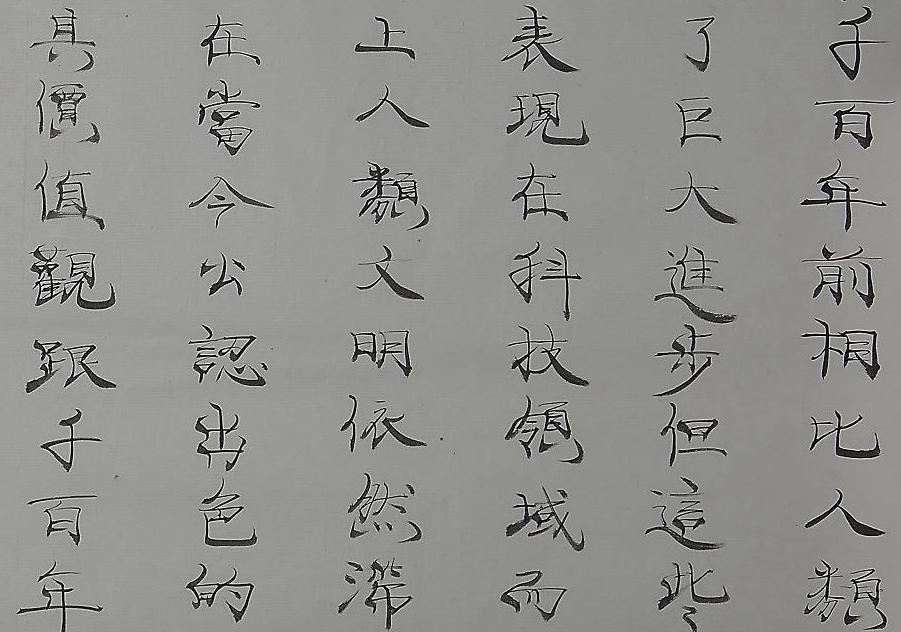 千百年前相比人類
了巨大進步但這些
表現在科技領域而
上人類文明依然滯
在當今公認出色的
其價值觀跟千百年